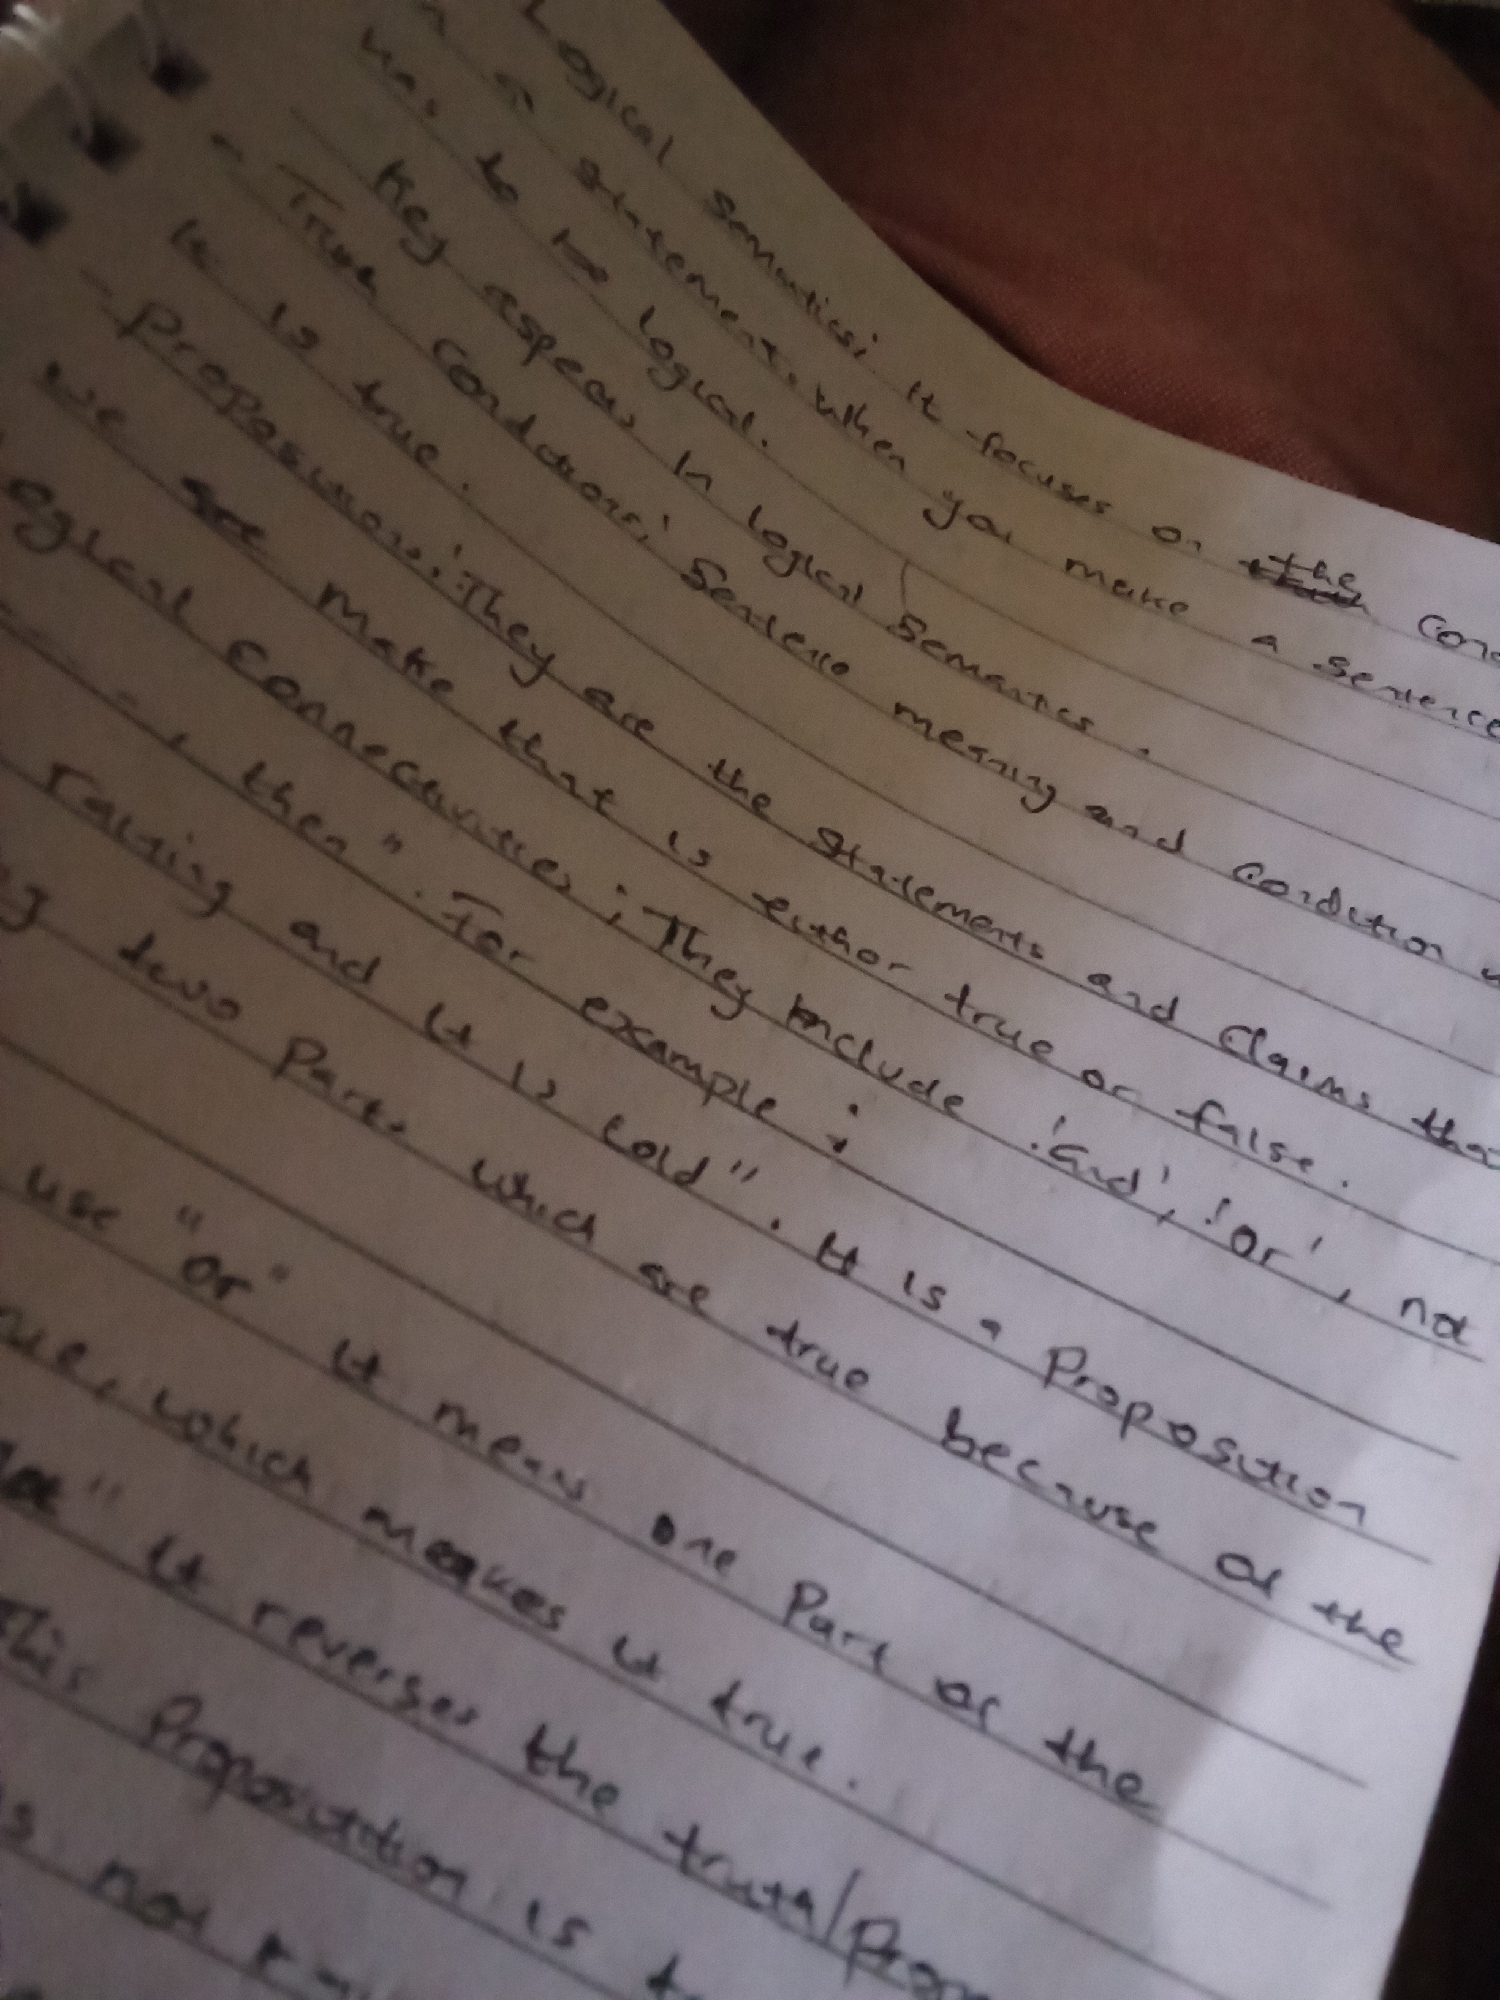 Logical Semantics; It focuses on the Con
a statement. When you make a sentence
has to be logical.
Key aspects in logical Semantics.
- Truth Conditions; Sentence meaning and condition
it is true.
- Propositions: They are the statements and Claims tha
we make that is either true or false.
ogical Connectivities; They include 'and', 'or', not
, then". For example:
raining and it is cold". It is a Proposition
two Parts which are true because of the
use "or" it means one Part of the
ue, which meakes it true.
ot" it reverses the truth/Prop
this Proposition is
is not